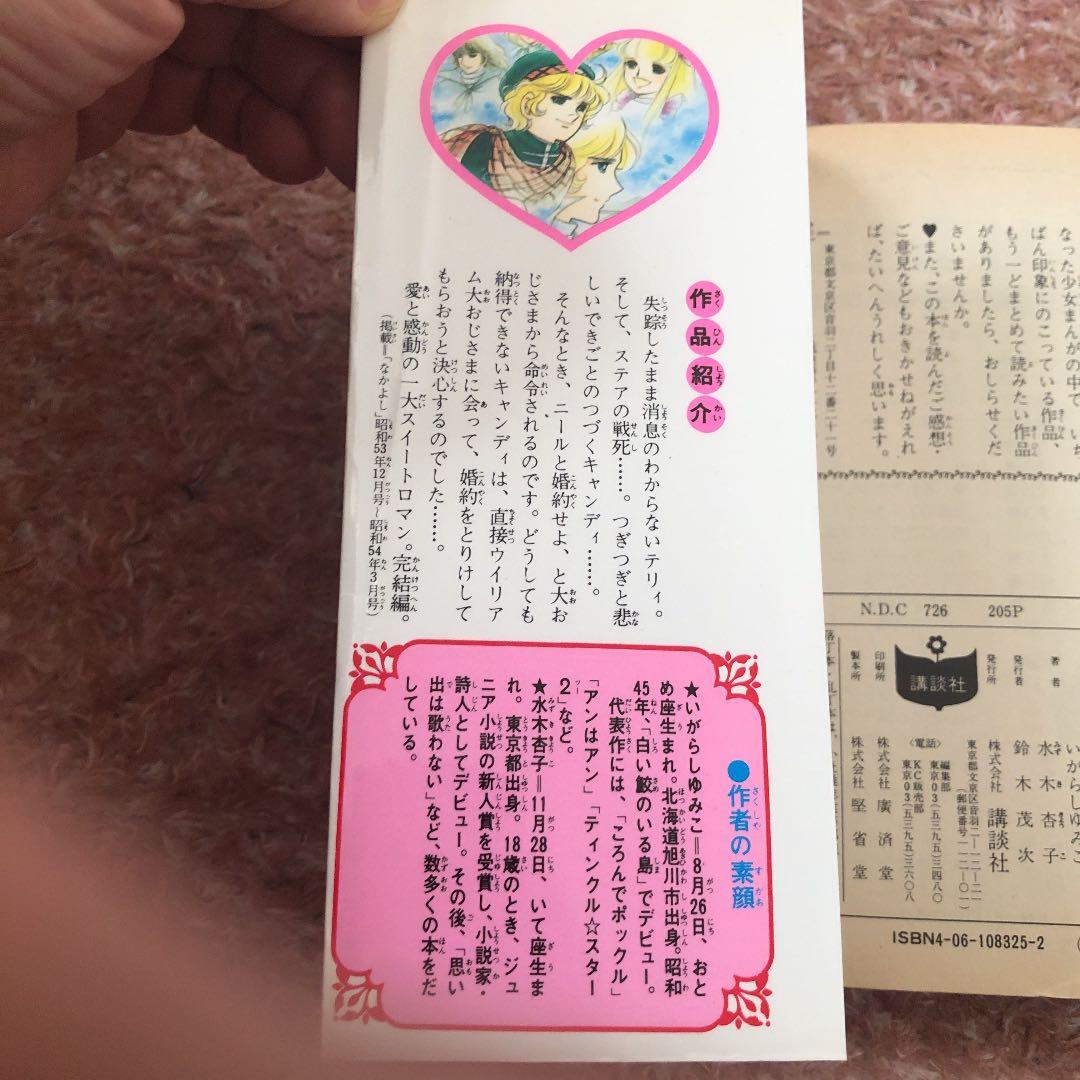 作品紹介
失踪したまま消息のわからないテリィ。
そして、ステアの戦死……。つぎつぎと悲
しいできごとのつづくキャンディ……。
そんなとき、ニールと婚約せよ、と大お
じさまから命令されるのです。どうしても
納得できないキャンディは、直接ウイリア
ム大おじさまに会って、婚約をとりけして
もらおうと決心するのでした……。
愛と感動の一大スイートロマン。完結編。
(掲載=「なかよし」昭和53年12月号~昭和54年3月号)
●作者の素顔
★いがらしゆみこ=8月26日、おと
め座生まれ。北海道旭川市出身。昭和
45年、「白い鮫のいる島」でデビュー。
代表作には、「ころんでポックル」
「アンはアン」「ティンクル☆スター
2」など。
★水木杏子=11月28日、いて座生ま
れ。東京都出身。18歳のとき、ジュ
ニア小説の新人賞を受賞し、小説家・
詩人としてデビュー。その後、「思い
出は歌わない」など、数多くの本をだ
している。
なった少女まんがの中で、いち
ばん印象にのこっている作品、
もう一どまとめて読みたい作品
がありましたら、おしらせくだ
さいませんか。
♥また、この本を読んだご感想・
ご意見などもおきかせねがえれ
ば、たいへんうれしく思います。
東京都文京区音羽二丁目十二番二十一号
N.D.C 726 205P
著者 いがらしゆみこ
水木杏子
発行者 鈴木茂次
発行所 株式会社 講談社
東京都文京区音羽二-一二-二一
(郵便番号一一二-〇一)
〈電話〉編集部 東京03(五三九五)三四八〇
KC販売部 東京03(五三九五)三六〇八
講談社
印刷所 株式会社 廣済堂
製本所 株式会社 堅省堂
ISBN4-06-108325-2